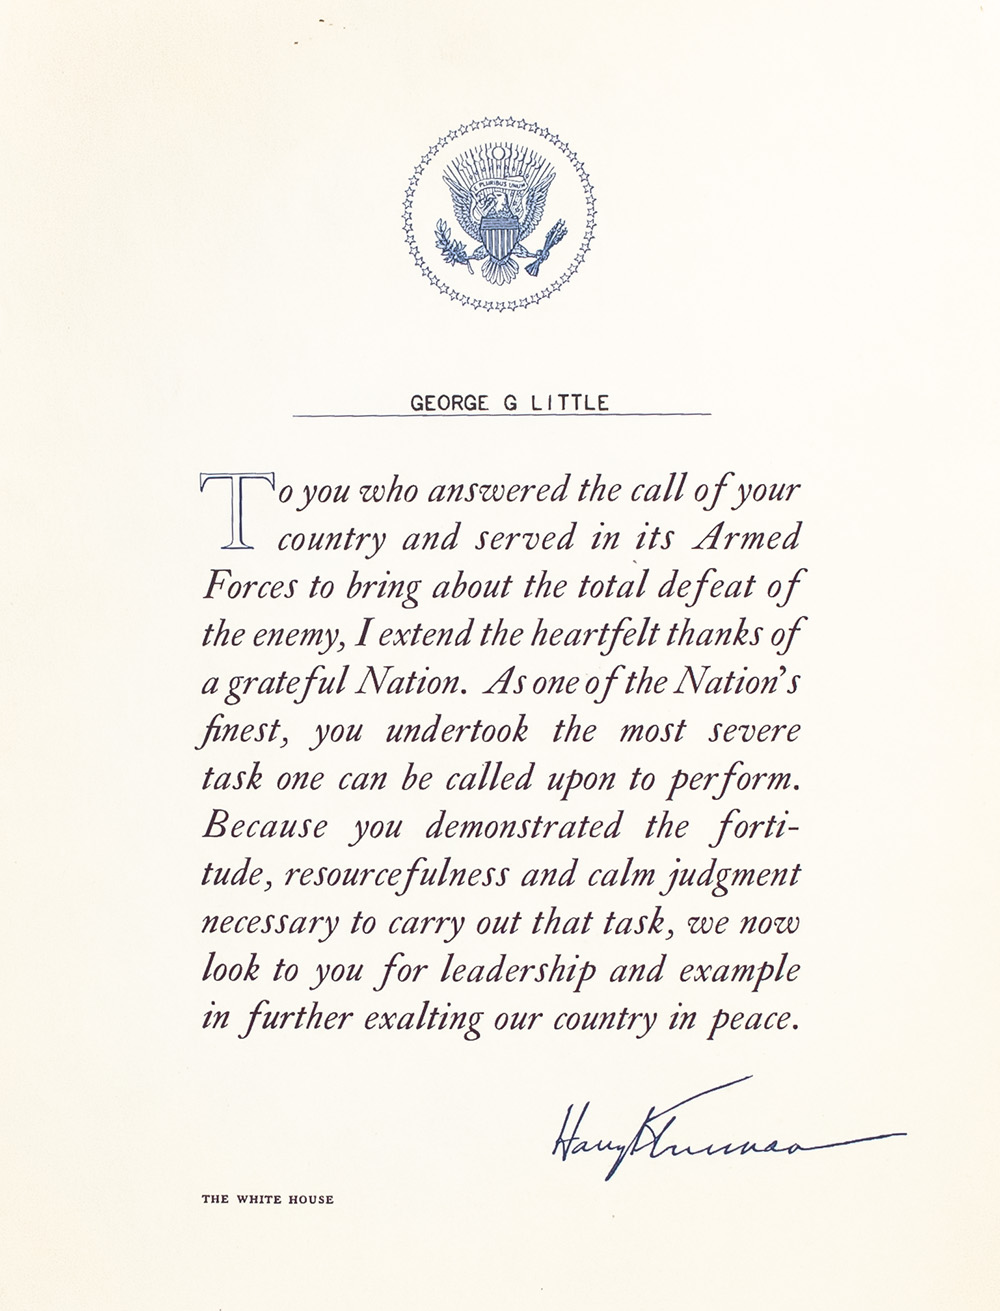 E PLURIBUS UNUM
GEORGE G LITTLE
To you who answered the call of your
country and served in its Armed
Forces to bring about the total defeat of
the enemy, I extend the heartfelt thanks of
a grateful Nation. As one of the Nation's
finest, you undertook the most severe
task one can be called upon to perform.
Because you demonstrated the forti-
tude, resourcefulness and calm judgment
necessary to carry out that task, we now
look to you for leadership and example
in further exalting our country in peace.
Harry S Truman
THE WHITE HOUSE